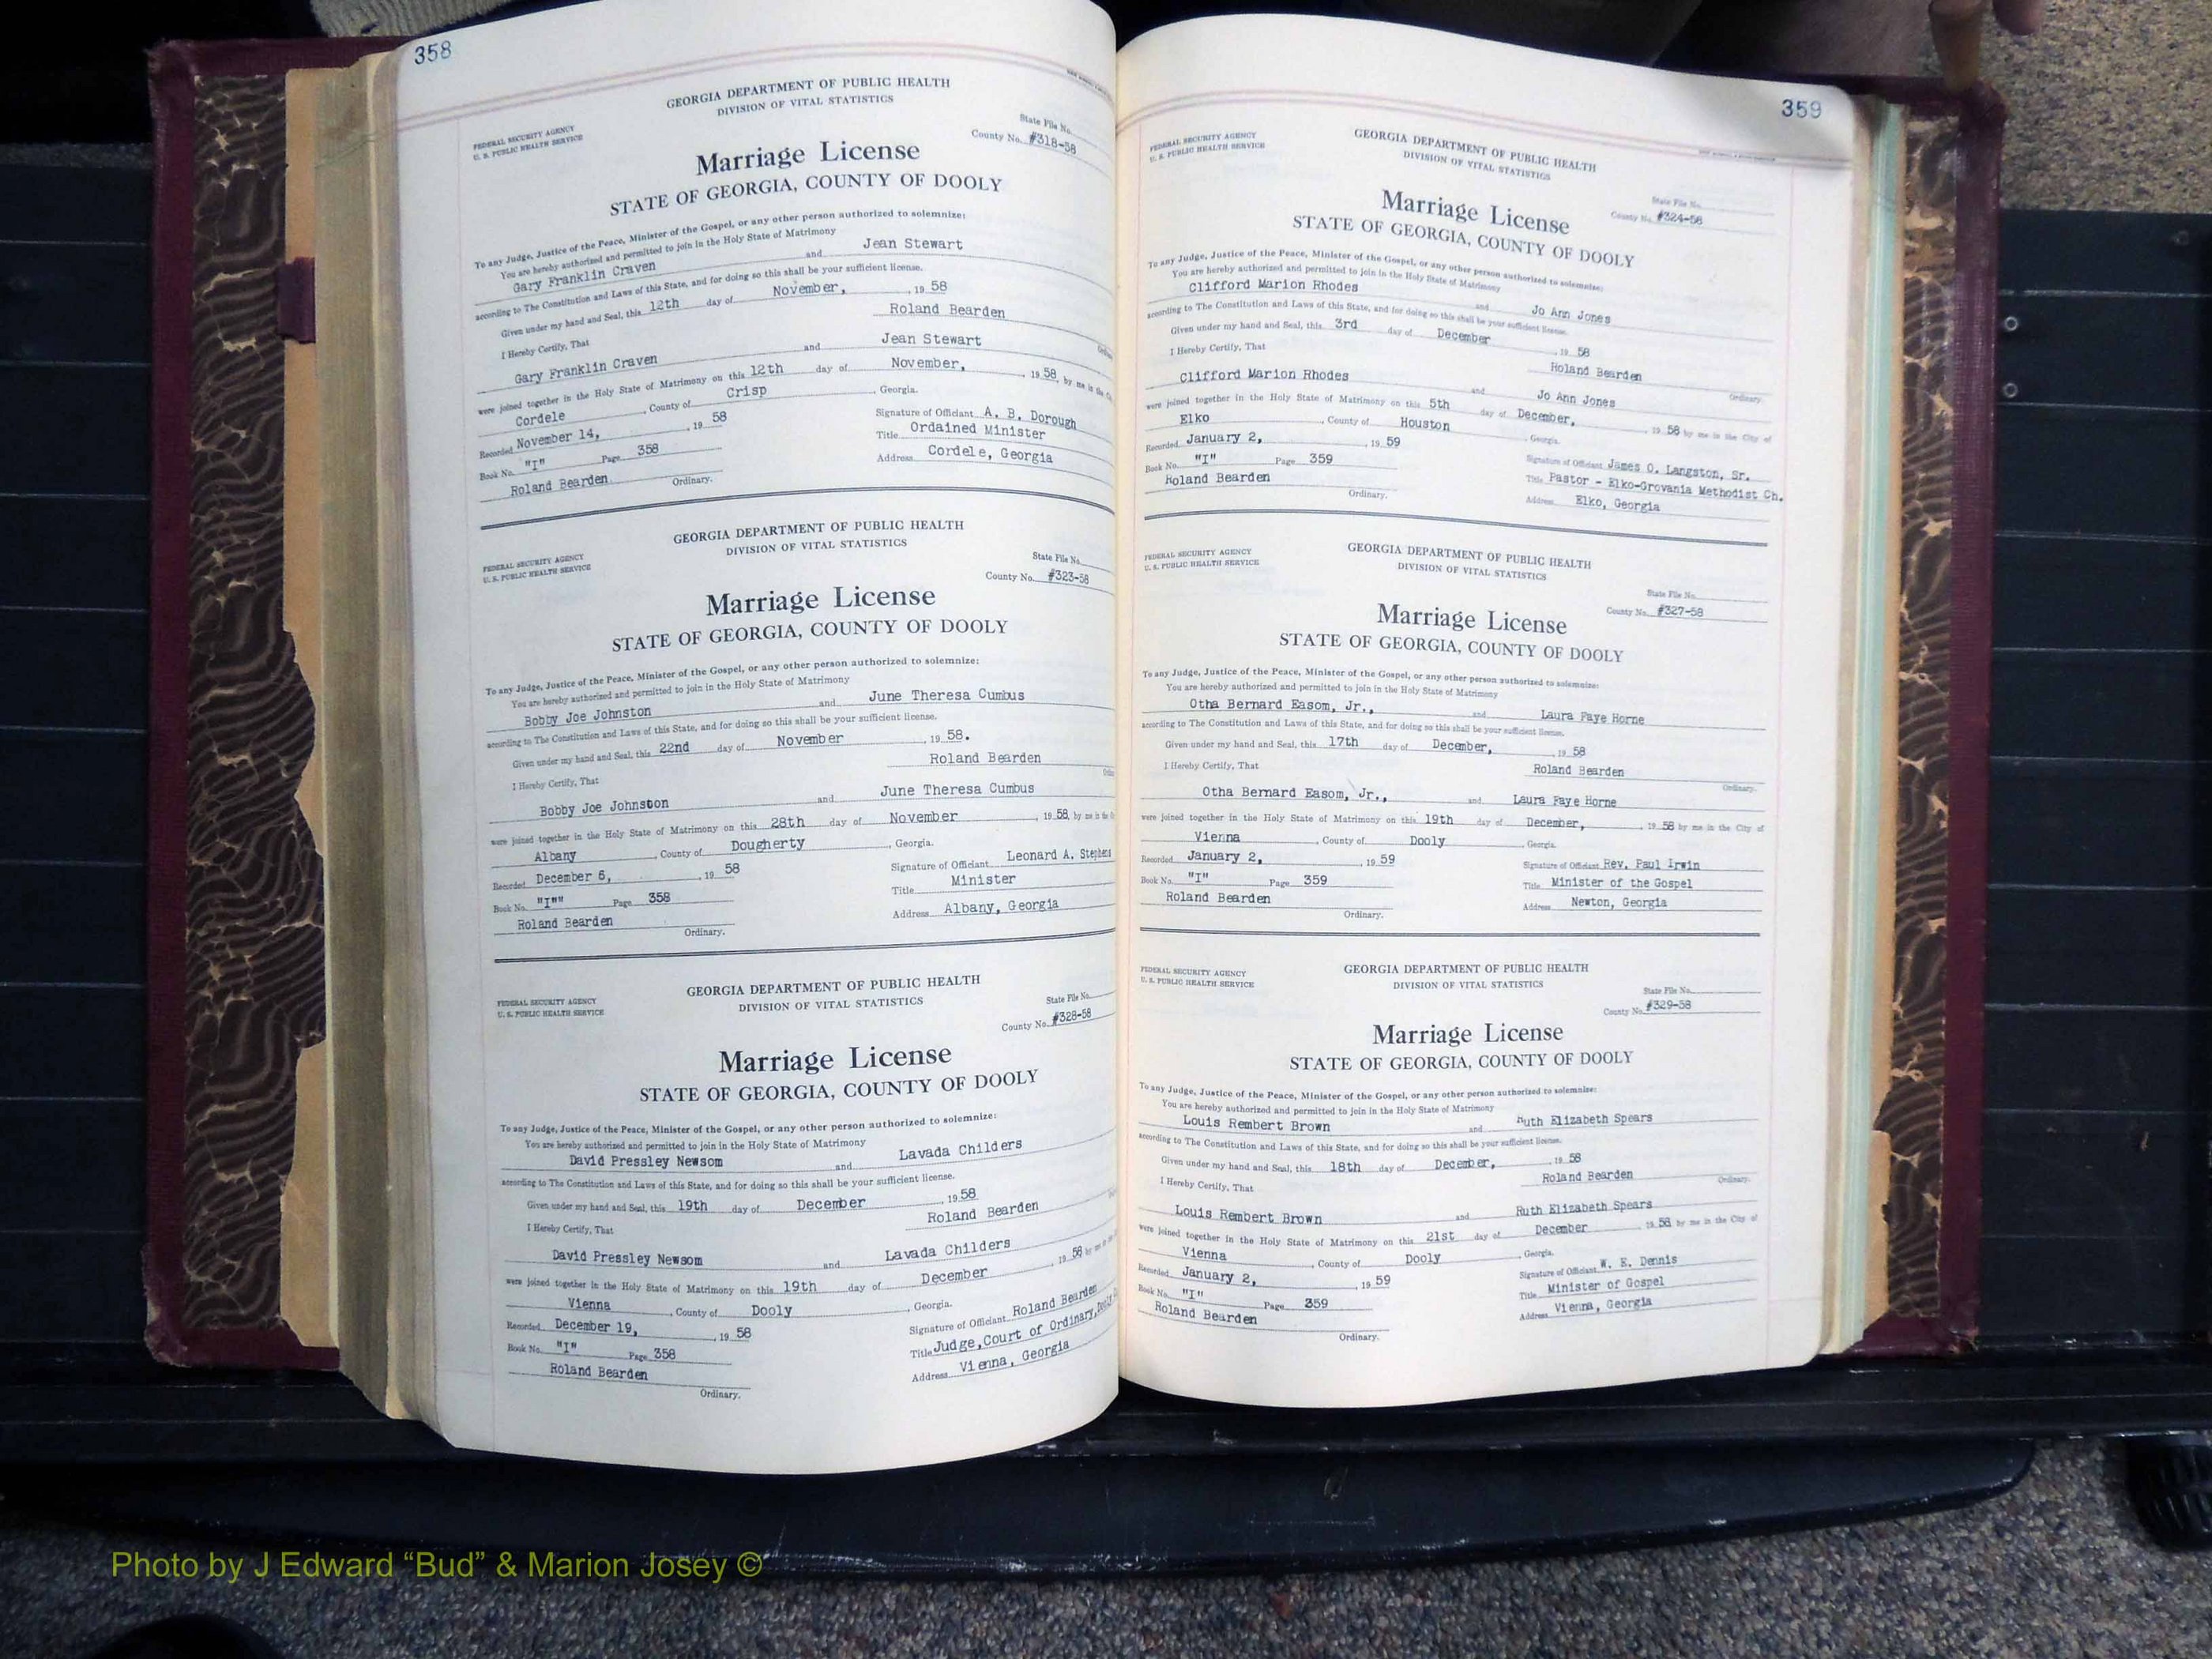 358
GEORGIA DEPARTMENT OF PUBLIC HEALTH
DIVISION OF VITAL STATISTICS
FEDERAL SECURITY AGENCY
U. S. PUBLIC HEALTH SERVICE
State File No.
County No. #318-58
Marriage License
STATE OF GEORGIA, COUNTY OF DOOLY
To any Judge, Justice of the Peace, Minister of the Gospel, or any other person authorized to solemnize:
You are hereby authorized and permitted to join in the Holy State of Matrimony
Gary Franklin Craven and Jean Stewart
according to The Constitution and Laws of this State, and for doing so this shall be your sufficient license.
Given under my hand and Seal, this 12th day of November, , 19 58
Roland Bearden
I Hereby Certify, That
Gary Franklin Craven and Jean Stewart
were joined together in the Holy State of Matrimony on this 12th day of November, 19 58, by me in the
Cordele , County of Crisp , Georgia.
Recorded November 14, , 19 58
Signature of Officiant A. B. Dorough
Book No. "I" Page 358
Title Ordained Minister
Roland Bearden
Address Cordele, Georgia
Ordinary.
GEORGIA DEPARTMENT OF PUBLIC HEALTH
DIVISION OF VITAL STATISTICS
FEDERAL SECURITY AGENCY
U. S. PUBLIC HEALTH SERVICE
State File No.
County No. #323-58
Marriage License
STATE OF GEORGIA, COUNTY OF DOOLY
To any Judge, Justice of the Peace, Minister of the Gospel, or any other person authorized to solemnize:
You are hereby authorized and permitted to join in the Holy State of Matrimony
Bobby Joe Johnston and June Theresa Cumbus
according to The Constitution and Laws of this State, and for doing so this shall be your sufficient license.
Given under my hand and Seal, this 22nd day of November , 19 58.
Roland Bearden
I Hereby Certify, That
Bobby Joe Johnston and June Theresa Cumbus
were joined together in the Holy State of Matrimony on this 28th day of November , 19 58, by me in the
Albany , County of Dougherty , Georgia.
Recorded December 6, , 19 58
Signature of Officiant Leonard A. Stephens
Book No. "I"" Page 358
Title Minister
Roland Bearden
Address Albany, Georgia
Ordinary.
GEORGIA DEPARTMENT OF PUBLIC HEALTH
DIVISION OF VITAL STATISTICS
FEDERAL SECURITY AGENCY
U. S. PUBLIC HEALTH SERVICE
State File No.
County No. #328-58
Marriage License
STATE OF GEORGIA, COUNTY OF DOOLY
To any Judge, Justice of the Peace, Minister of the Gospel, or any other person authorized to solemnize:
You are hereby authorized and permitted to join in the Holy State of Matrimony
David Pressley Newsom and Lavada Childers
according to The Constitution and Laws of this State, and for doing so this shall be your sufficient license.
Given under my hand and Seal, this 19th day of December , 19 58
Roland Bearden
I Hereby Certify, That
David Pressley Newsom and Lavada Childers
were joined together in the Holy State of Matrimony on this 19th day of December , 19 58 by me in the
Vienna , County of Dooly , Georgia.
Recorded December 19, , 19 58
Signature of Officiant Roland Bearden
Book No. "I" Page 358
Title Judge, Court of Ordinary,
Roland Bearden
Address Vienna, Georgia
Ordinary.
359
GEORGIA DEPARTMENT OF PUBLIC HEALTH
DIVISION OF VITAL STATISTICS
FEDERAL SECURITY AGENCY
U. S. PUBLIC HEALTH SERVICE
State File No.
County No. #324-58
Marriage License
STATE OF GEORGIA, COUNTY OF DOOLY
To any Judge, Justice of the Peace, Minister of the Gospel, or any other person authorized to solemnize:
You are hereby authorized and permitted to join in the Holy State of Matrimony
Clifford Marion Rhodes and Jo Ann Jones
according to The Constitution and Laws of this State, and for doing so this shall be your sufficient license.
Given under my hand and Seal, this 3rd day of December , 19 58
Roland Bearden
I Hereby Certify, That
Ordinary.
Clifford Marion Rhodes and Jo Ann Jones
were joined together in the Holy State of Matrimony on this 5th day of December, , 19 58 by me in the City of
Elko , County of Houston , Georgia.
Recorded January 2, , 19 59
Signature of Officiant James O. Langston, Sr.
Book No. "I" Page 359
Title Pastor - Elko-Grovania Methodist Ch.
Roland Bearden
Address Elko, Georgia
Ordinary.
GEORGIA DEPARTMENT OF PUBLIC HEALTH
DIVISION OF VITAL STATISTICS
FEDERAL SECURITY AGENCY
U. S. PUBLIC HEALTH SERVICE
State File No.
County No. #327-58
Marriage License
STATE OF GEORGIA, COUNTY OF DOOLY
To any Judge, Justice of the Peace, Minister of the Gospel, or any other person authorized to solemnize:
You are hereby authorized and permitted to join in the Holy State of Matrimony
Otha Bernard Easom, Jr., and Laura Faye Horne
according to The Constitution and Laws of this State, and for doing so this shall be your sufficient license.
Given under my hand and Seal, this 17th day of December, , 19 58
Roland Bearden
I Hereby Certify, That
Ordinary.
Otha Bernard Easom, Jr., and Laura Faye Horne
were joined together in the Holy State of Matrimony on this 19th day of December, , 19 58 by me in the City of
Vienna , County of Dooly , Georgia.
Recorded January 2, , 19 59
Signature of Officiant Rev. Paul Irwin
Book No. "I" Page 359
Title Minister of the Gospel
Roland Bearden
Address Newton, Georgia
Ordinary.
GEORGIA DEPARTMENT OF PUBLIC HEALTH
DIVISION OF VITAL STATISTICS
FEDERAL SECURITY AGENCY
U. S. PUBLIC HEALTH SERVICE
State File No.
County No. #329-58
Marriage License
STATE OF GEORGIA, COUNTY OF DOOLY
To any Judge, Justice of the Peace, Minister of the Gospel, or any other person authorized to solemnize:
You are hereby authorized and permitted to join in the Holy State of Matrimony
Louis Rembert Brown and Ruth Elizabeth Spears
according to The Constitution and Laws of this State, and for doing so this shall be your sufficient license.
Given under my hand and Seal, this 18th day of December, , 19 58
Roland Bearden
I Hereby Certify, That
Ordinary.
Louis Rembert Brown and Ruth Elizabeth Spears
were joined together in the Holy State of Matrimony on this 21st day of December , 19 58 by me in the City of
Vienna , County of Dooly , Georgia.
Recorded January 2, , 19 59
Signature of Officiant W. E. Dennis
Book No. "I" Page 359
Title Minister of Gospel
Roland Bearden
Address Vienna, Georgia
Ordinary.
Photo by J Edward “Bud” & Marion Josey ©